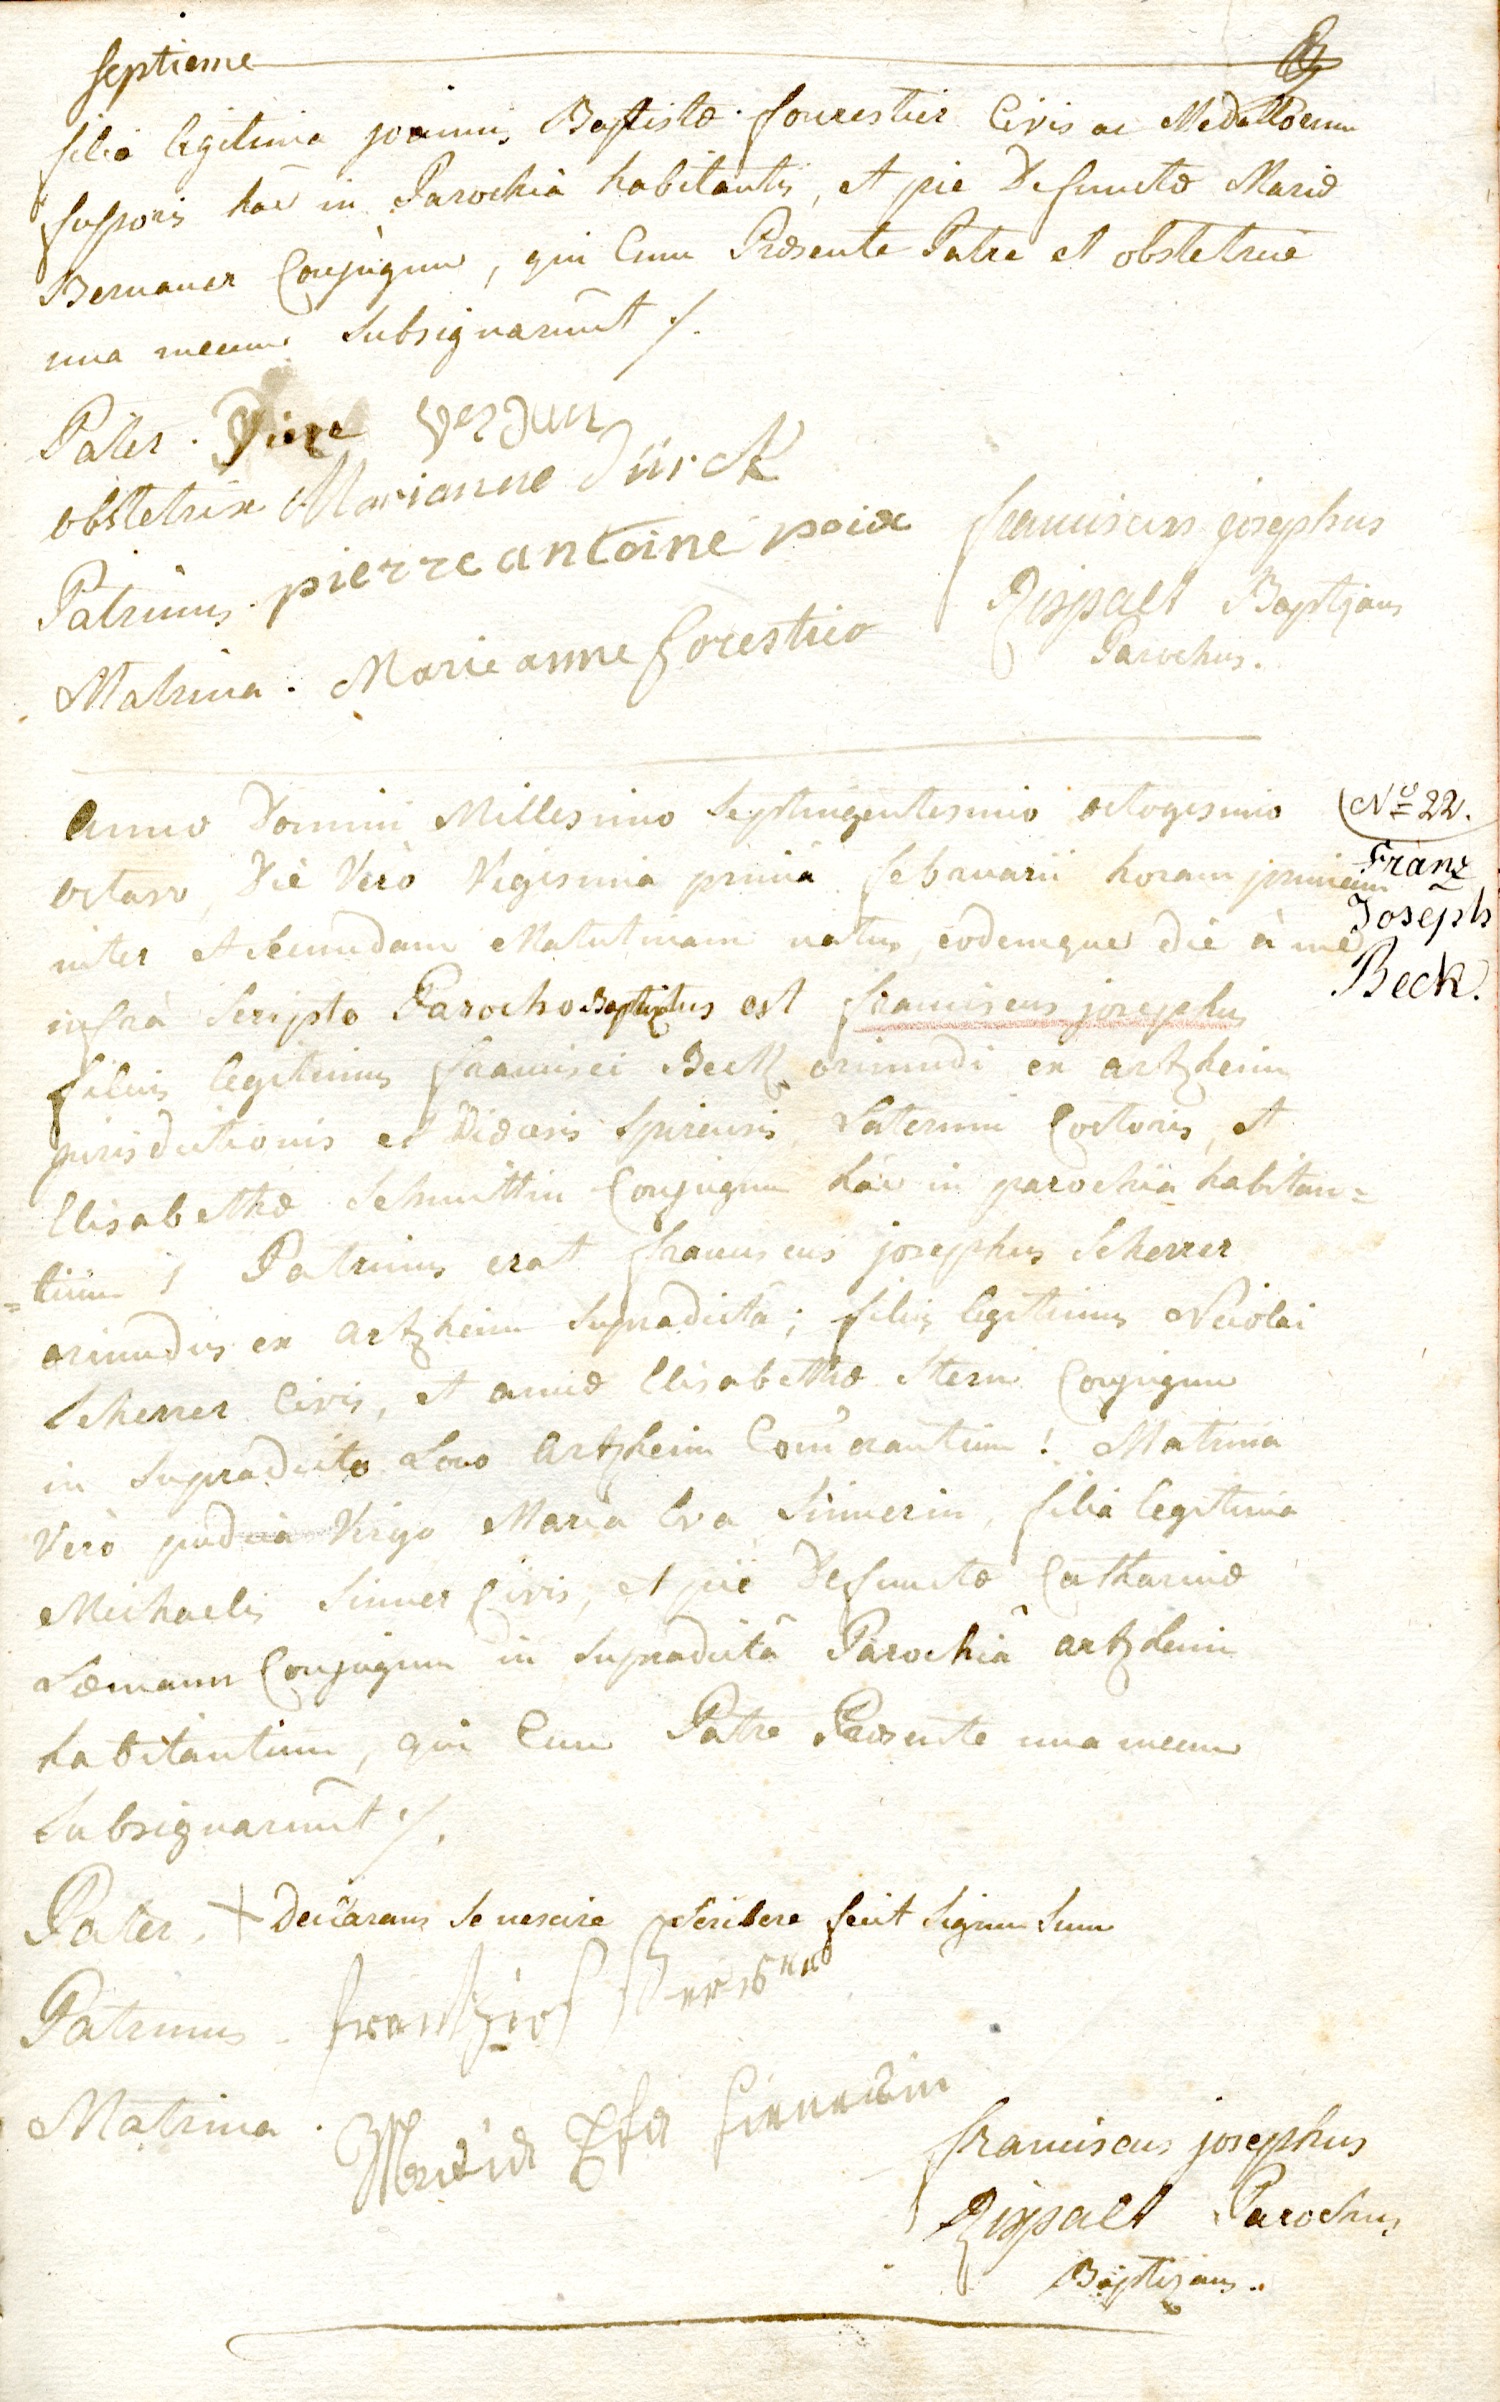 septieme
filia legitima joannis Baptistæ fourestier Civis ac Medallorum
fusoris hac in Parochiâ habitantis, et pie Defunctæ Mariæ
Bernauer Conjugum, qui Cum Præsente Patre et obstetrice
una mecum Subsignarunt ./.
Pater. Piere Verdun
obstetrix Marianne Türck
Patrinus. pierre antoine poix
franciscus josephus
Rispalt Baptizans
Parochus.
Matrina. Marie anne forestier
anno Domini Millesimo Septingentesimo octogesimo
No 22.
octavo, Die Verò Vigesima primâ februarii horam primam
Franz
inter et secundam Matutinam natus, eodemque die à me
Joseph
infrà Scripto Parocho Baptizatus est franciscus josephus
Beck.
filius legitimus francisci Beck oriundi ex artzheim
jurisdictionis et Diœcesis Spirensis, Laterum Coctoris, et
Elisabethæ Schmittin Conjugum hâc in parochiâ habitan=
=tium; Patrinus erat franciscus josephus Scherrer
oriundus ex artzheim Supradictâ; filius legitimus Nicolai
Scherrer Civis, et annæ Elisabethæ Stern Conjugum
in Supradicto Loco Artzheim Com̄orantium! Matrina
Verò pudica Virgo Maria Eva Sinnerin filia legitima
Michaelis Sinner Civis, et piè Defunctæ Catharinæ
Læmann Conjugum in Supradictâ Parochiâ artzheim
habitantium, qui Cum Patre Præsente una mecum
Subsignarunt ./.
Pater. + Declarans se nescire scribere fecit Signum Suum
Patrinus. frantz jos
Matrina. Maria Efa sinnerin
franciscus josephus
Rispalt Parochus
Baptizans.